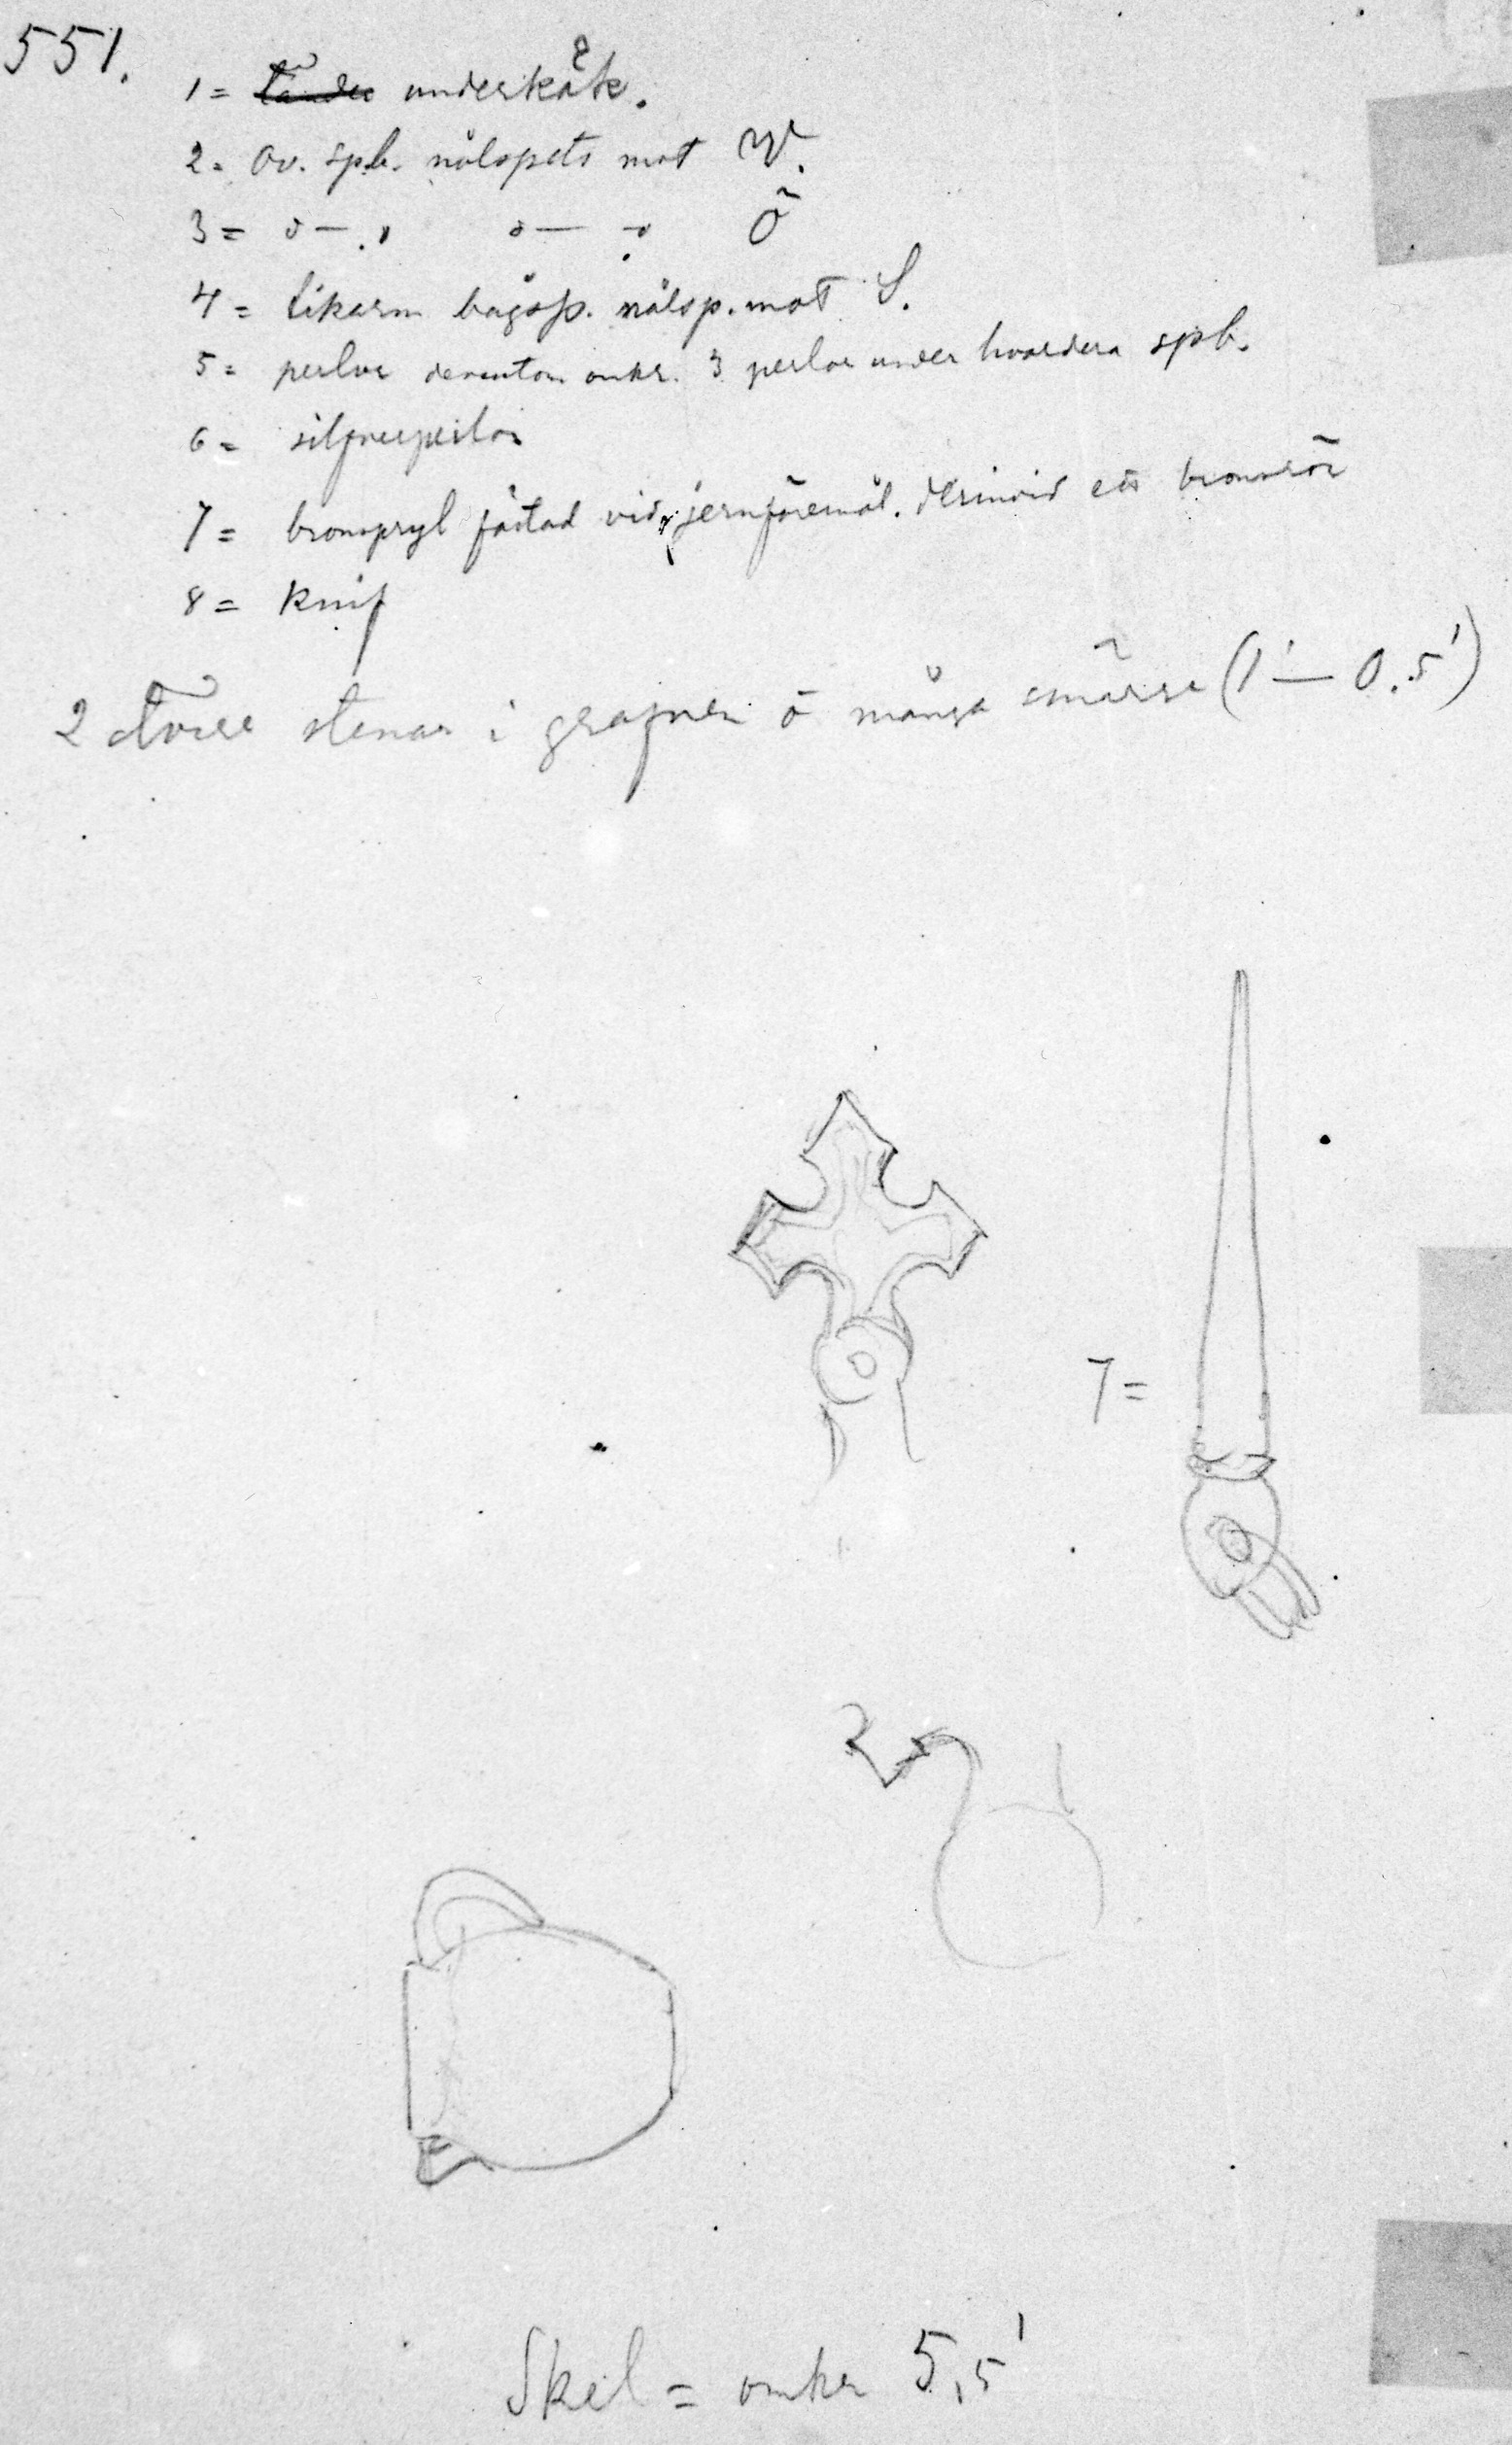 551.
1 = Tänder underkäk.
2 = Ov. spb. nålspets mot W.
3 = d — . " " — " Ö
4 = likarm bågsp. nålsp. mot S.
5 = perlor omkr. 3 perlor under hvardera spb.
6 = silfverperlor
7 = bronspryl fästad vid jernföremål. derinvid ett bronsrör
8 = knif
2 större stenar i grafven o många smärre (1' — 0.5')
7 =
Skel = omkr 5,5'